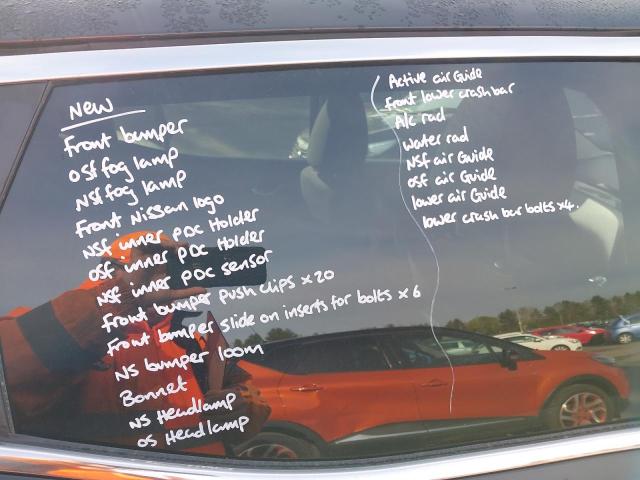 New
Front bumper
OSf fog lamp
NSf fog lamp
Front Nissan logo
NSF inner PDC Holder
OSF inner PDC Holder
NSF inner PDC sensor
Front bumper push clips x 20
Front bumper slide on inserts for bolts x 6
NS bumper loom
Bonnet
NS Headlamp
OS Headlamp
Active air Guide
Front lower crash bar
A/c rad
Water rad
NSF air Guide
OSF air Guide
lower air Guide
lower crash bar bolts x4.